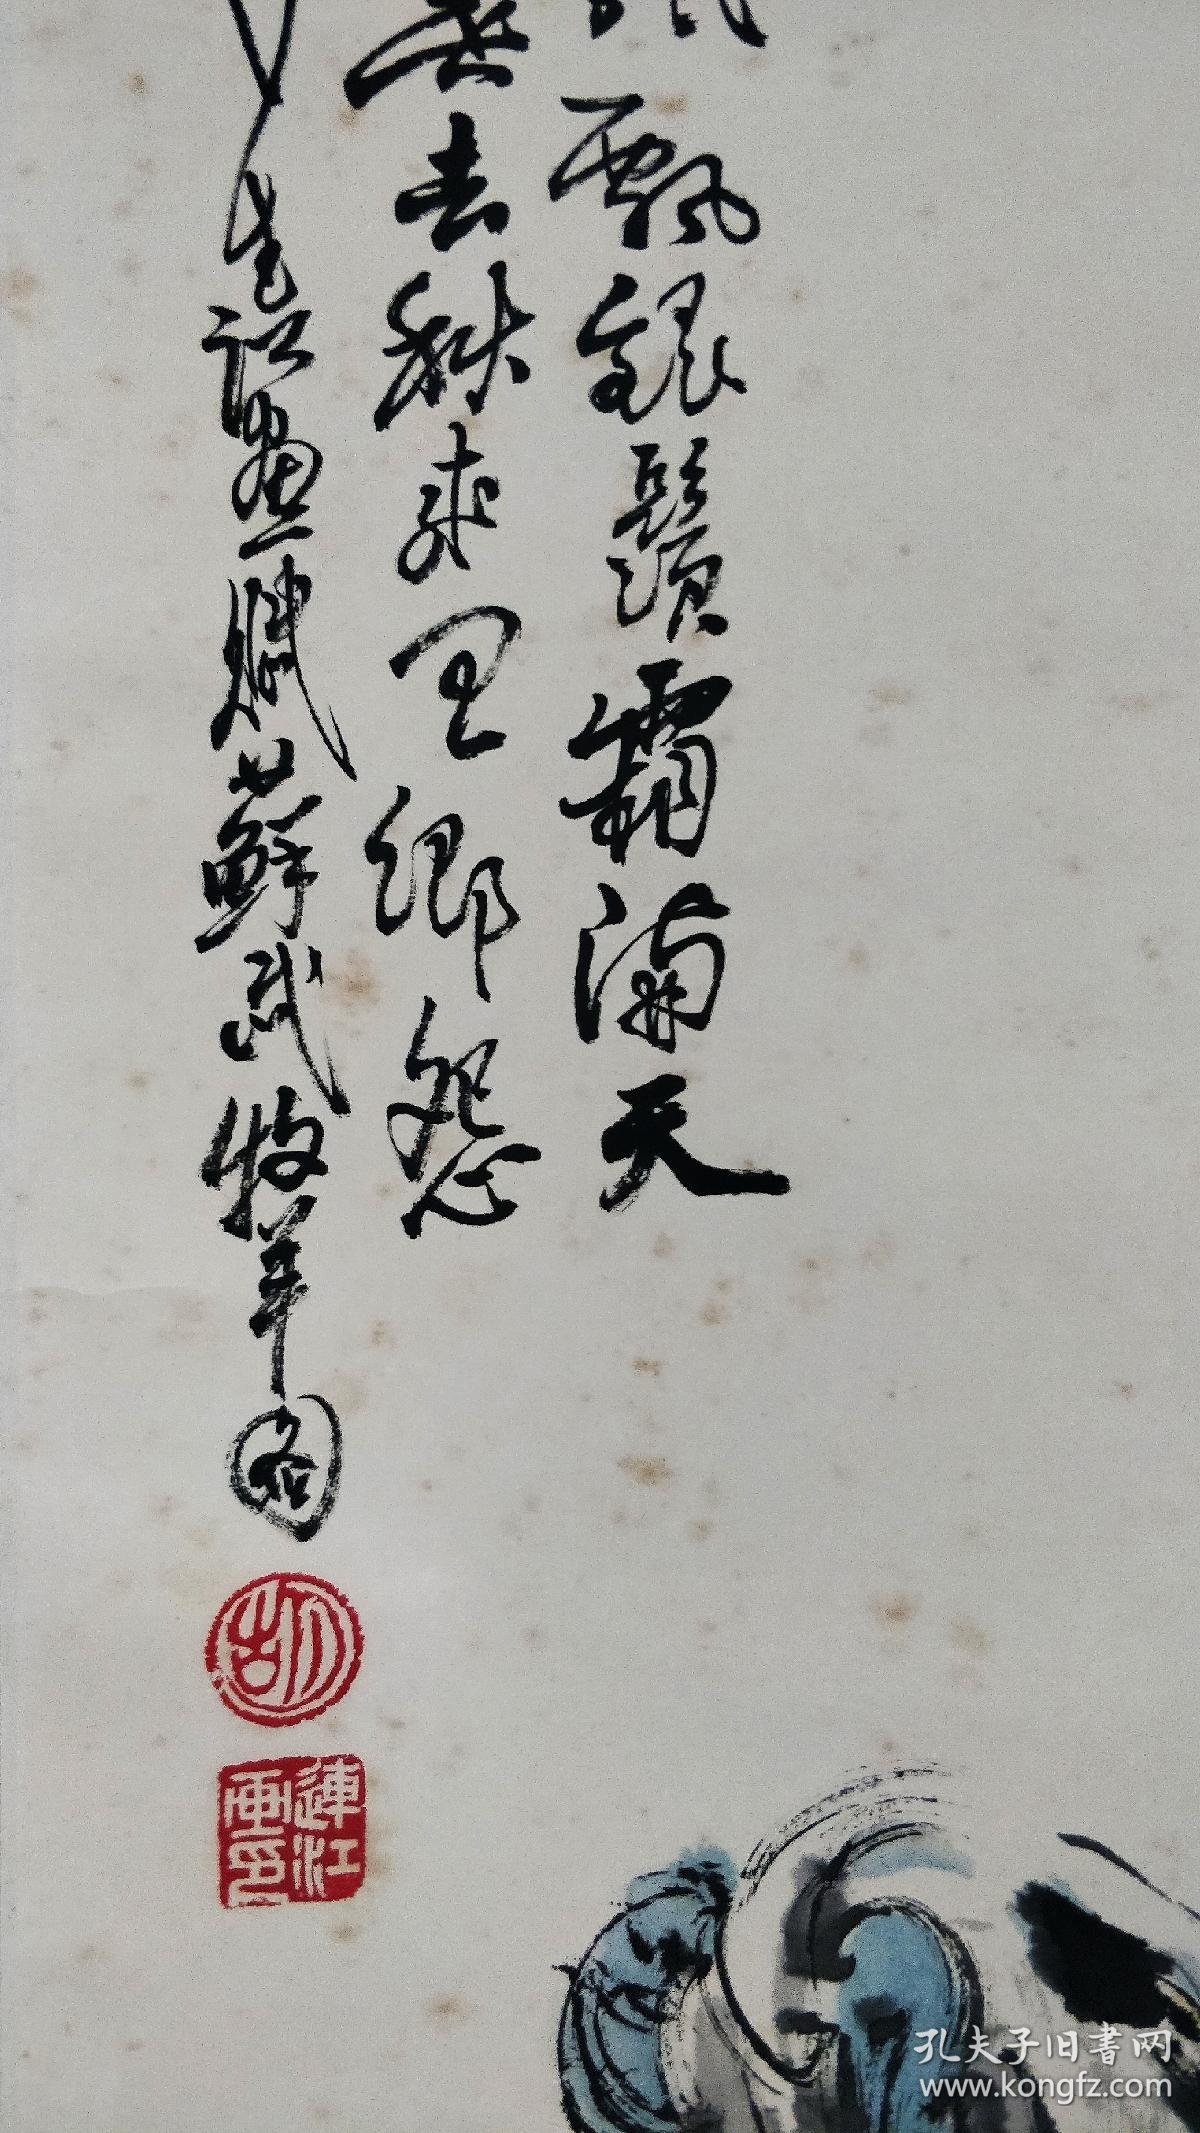 飄銀鬚霜滿天
去秋來里鄉怨
連江畫賦蘇武牧羊圖
胡
連江
画印
孔夫子旧書网
www.kongfz.com